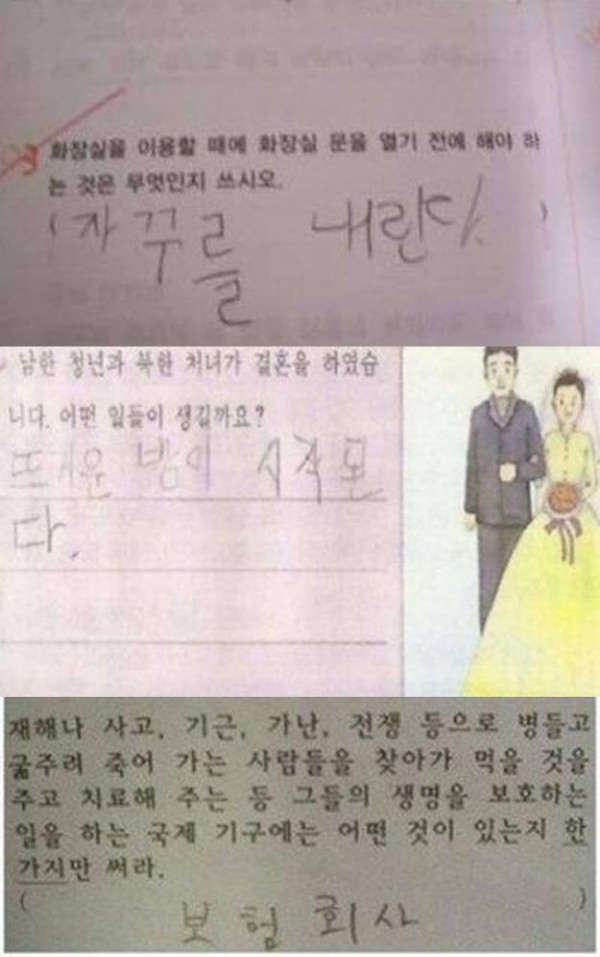 화장실을 이용할 때에 화장실 문을 열기 전에 해야 하
는 것은 무엇인지 쓰시오.
( 자꾸를 내린다. )
남한 청년과 북한 처녀가 결혼을 하였습
니다. 어떤 일들이 생길까요?
뜨거운 밤이 시작된
다.
재해나 사고, 기근, 가난, 전쟁 등으로 병들고
굶주려 죽어 가는 사람들을 찾아가 먹을 것을
주고 치료해 주는 등 그들의 생명을 보호하는
일을 하는 국제 기구에는 어떤 것이 있는지 한
가지만 써라.
( 보험회사 )